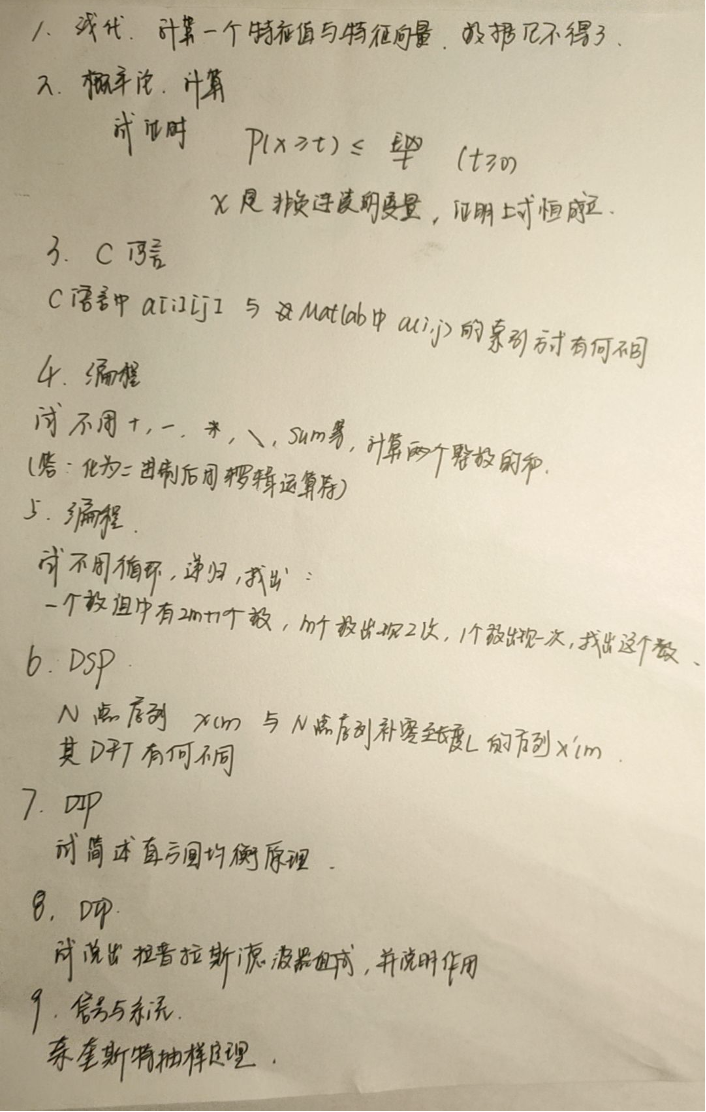 1. 线代. 计算一个特征值与特征向量. 数据记不得了.
2. 概率论. 计算
试证时 P(x≥t) ≤ E(x)/t (t≥0)
x 是非负连续的变量, 证明上式恒成立.
3. C 语言
C语言中 a[i][j] 与 Matlab中 a(i,j) 的索引方式有何不同
4. 编程
试不用 +, -, *, \, sum等, 计算两个整数的和.
(答: 化为二进制后用逻辑运算符)
5. 编程.
试不用循环, 递归, 找出:
一个数组中有2m+1个数, m个数出现2次, 1个数出现一次, 找出这个数.
6. DSP.
N 点序列 x(n) 与 N点序列补零至长度L 的序列 x'(n).
其DFT有何不同
7. DIP
试简述直方图均衡原理.
8. DIP.
试说出拉普拉斯滤波器组成, 并说明作用
9. 信号与系统.
奈奎斯特抽样定理.